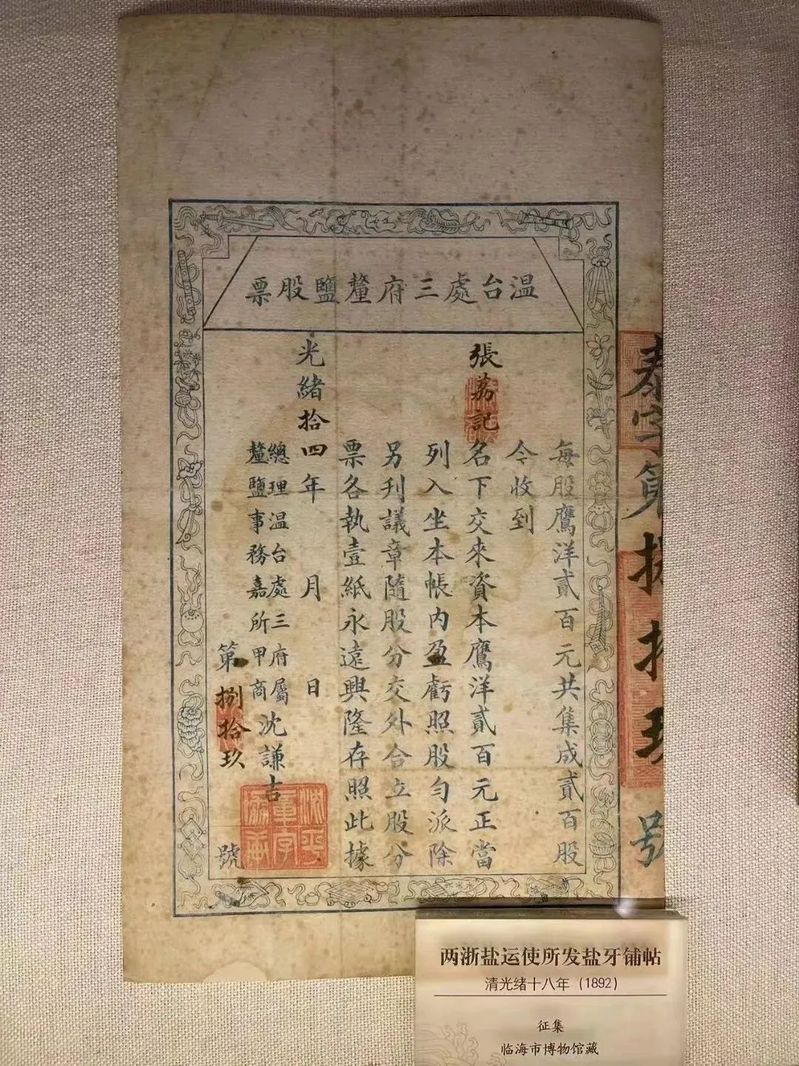 溫台處三府釐鹽股票
每股鷹洋貳百元共集成貳百股
今收到
張荔記名下交來資本鷹洋貳百元正當
列入坐本帳內盈虧照股勻派除
另刊議章隨股分交外合立股分
票各執壹紙永遠興隆存照此據
光緒拾四年 月 日
總理溫台處三府屬
釐鹽事務嘉所甲商沈謙吉
第捌拾玖號
泰字第捌拾玖號
两浙盐运使所发盐牙铺帖
清光绪十八年（1892）
征集
临海市博物馆藏